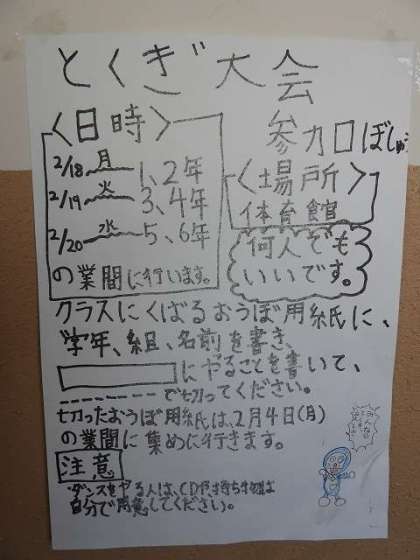 とくぎ大会
参加ぼしゅう
〈日時〉
2/18 月 1、2年
2/19 火 3、4年
2/20 水 5、6年
の業間に行います。
〈場所〉
体育館
何人でも
いいです。
クラスにくばるおうぼ用紙に、
学年、組、名前を書き、
にやることを書いて、
で切ってください。
切ったおうぼ用紙は、2月4日(月)
の業間に集めに行きます。
注意
ダンスをやる人は、CDや持ち物は
自分で用意してください。